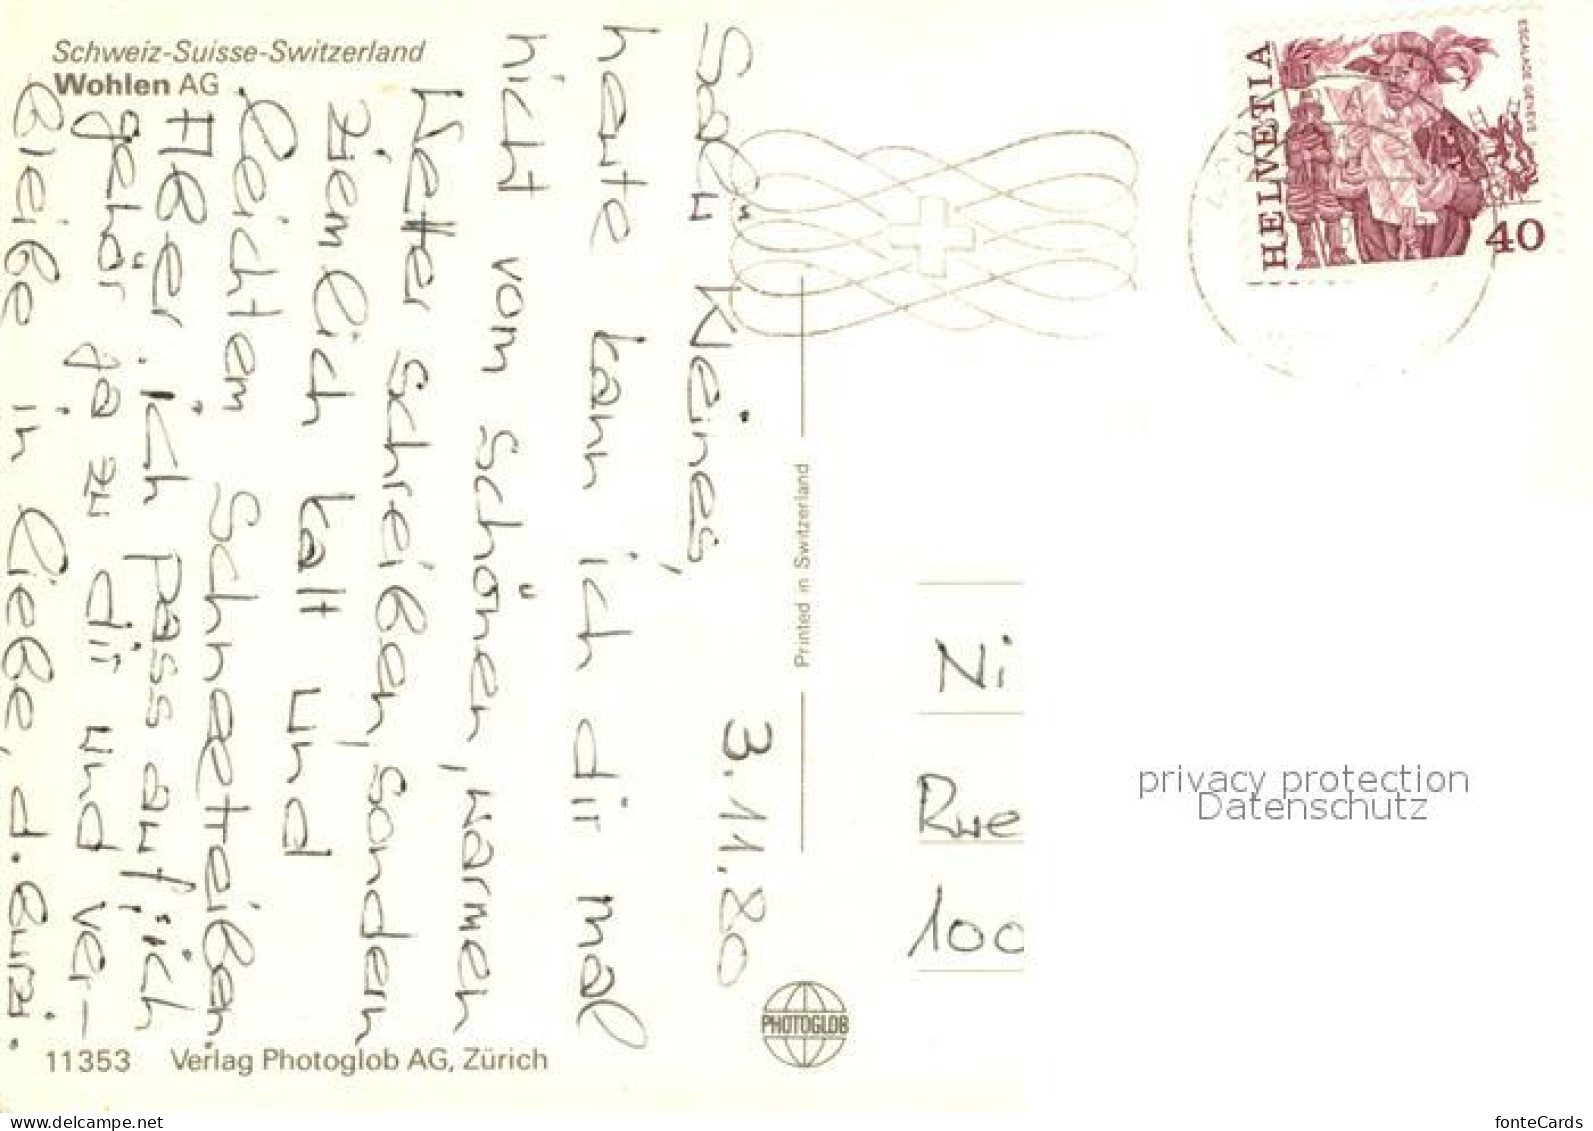 Schweiz-Suisse-Switzerland
Wohlen AG
3.11.80
Sali Kleines,
heute kann ich dir mal
nicht vom schönen, warmen
Wetter schreiben, sondern
ziemlich kalt und
leichtem Schneetreiben.
Aber ich pass auf, ich
gehör ja zu dir und ver-
bleibe in Liebe, d.
11353 Verlag Photoglob AG, Zürich
Printed in Switzerland
PHOTOGLOB
HELVETIA
ESCALADE GENÈVE
40
Ni
Rue
100
privacy protection
Datenschutz
www.ansichtskartenversand.net
fonteCards